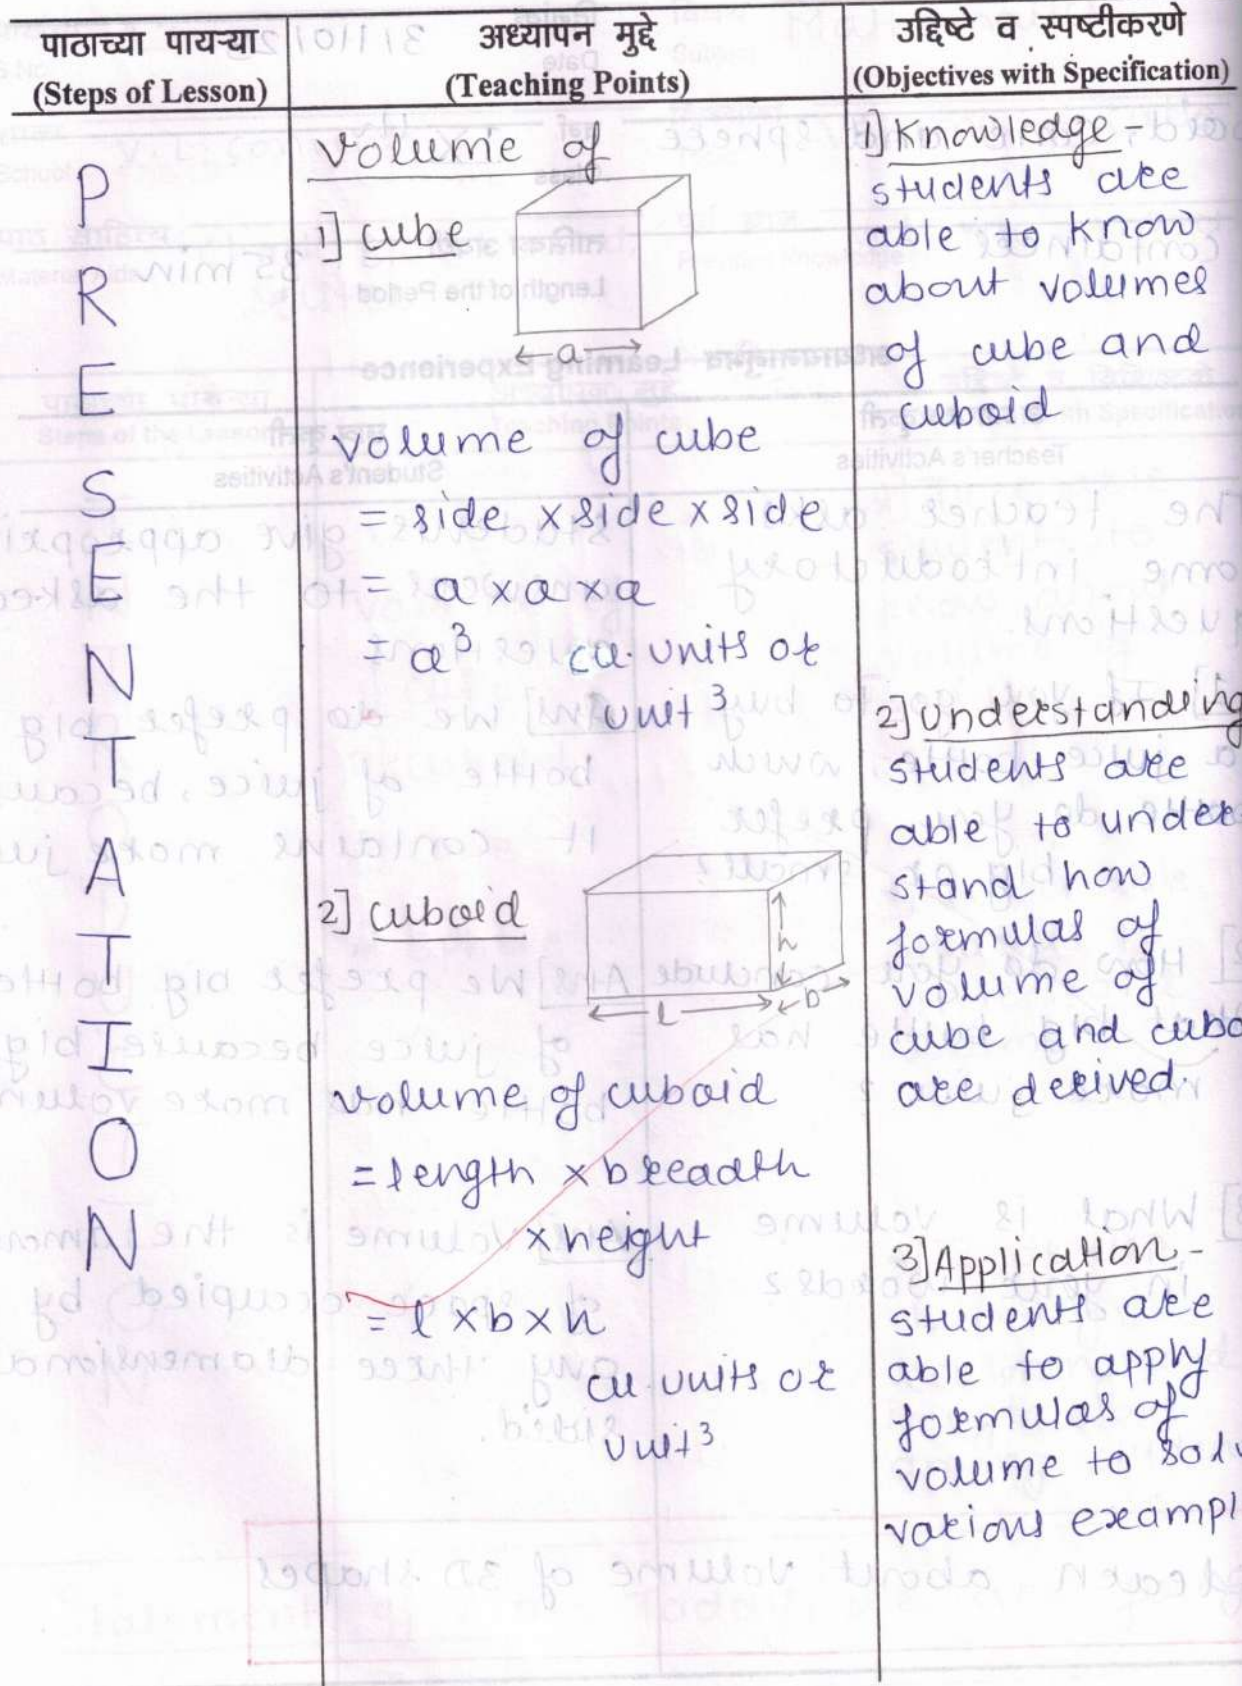 पाठाच्या पायऱ्या
(Steps of Lesson)
अध्यापन मुद्दे
(Teaching Points)
उद्दिष्टे व स्पष्टीकरणे
(Objectives with Specification)
PRESENTATION
Volume of
1] cube
a
volume of cube
= side × side × side
= a × a × a
= a³ cu. units or
unit³
2] cuboid
h
l
b
volume of cuboid
= length × breadth
× height
= l × b × h
cu. units or
unit³
1] Knowledge -
students are
able to know
about volumes
of cube and
cuboid
2] Understanding
students are
able to under
stand how
formulas of
volume of
cube and cubo
are derived.
3] Application -
students are
able to apply
formulas of
volume to solv
various exampl